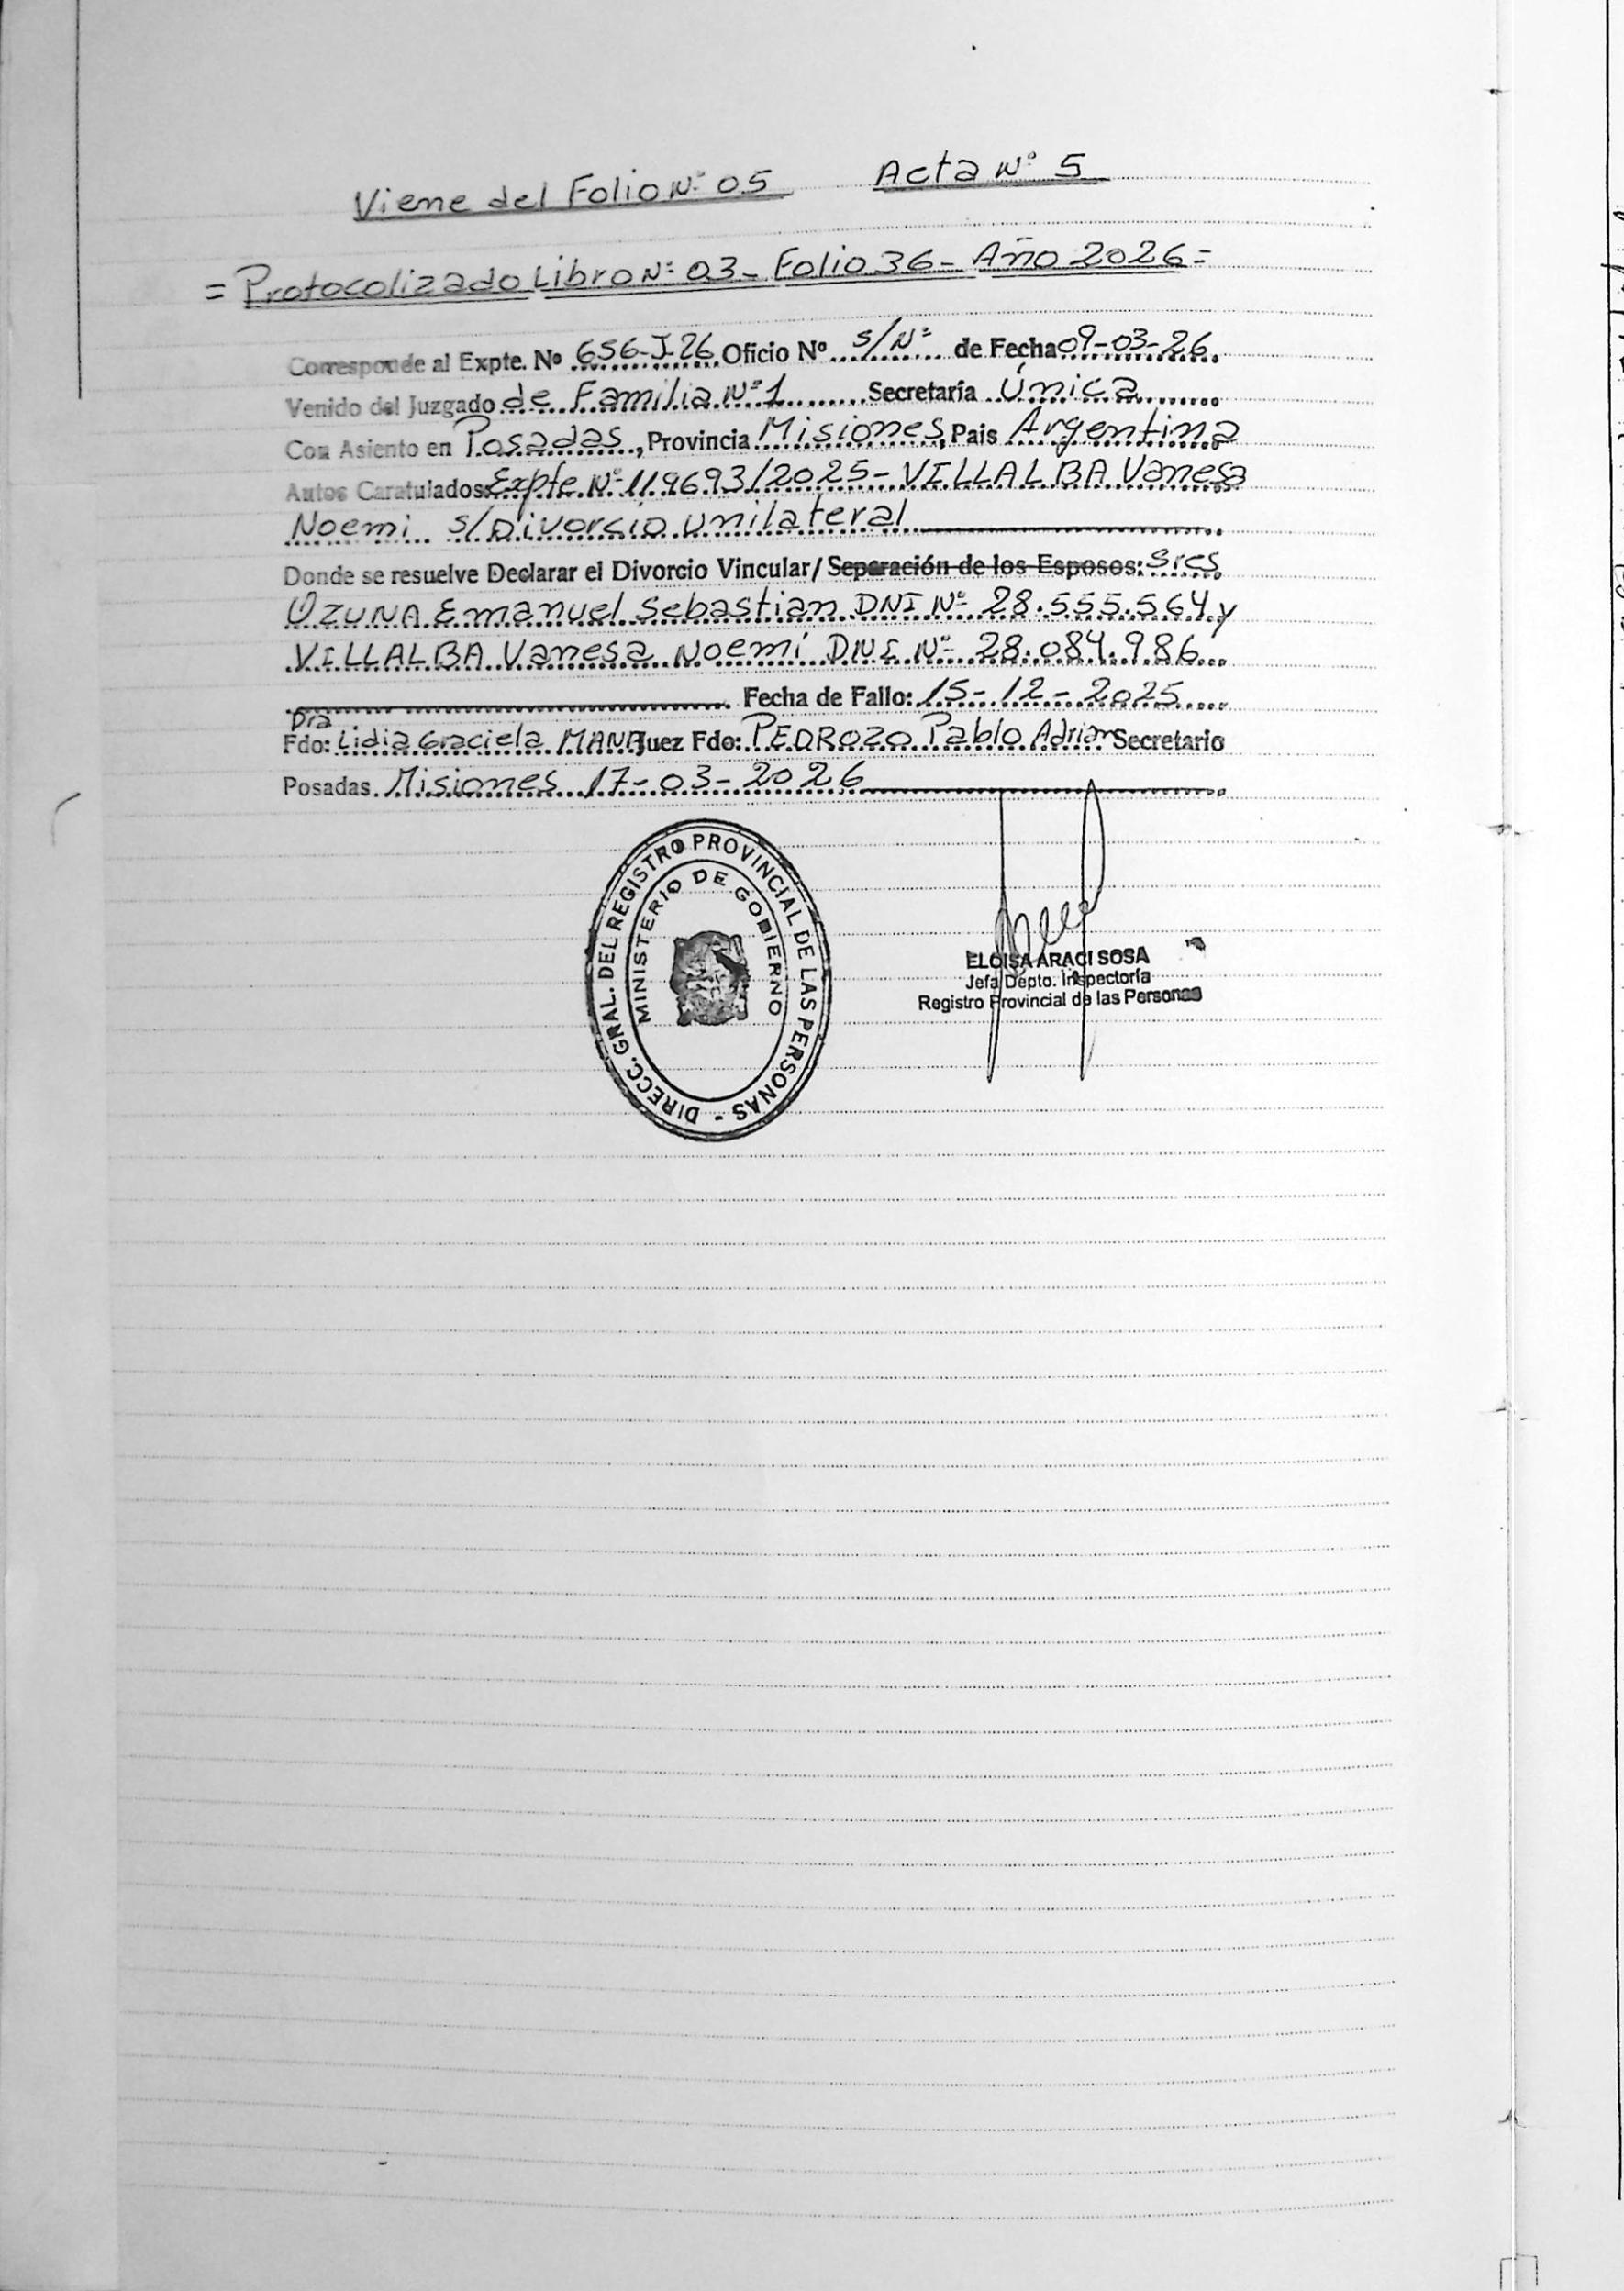 Viene del Folio Nº 05 Acta Nº 5
= Protocolizado Libro Nº 03 - Folio 36 - Año 2026 =
Corresponde al Expte. Nº 656-J-26 Oficio Nº s/Nº de Fecha 09-03-26
Venido del Juzgado de Familia Nº 1 Secretaría Única
Con Asiento en Posadas, Provincia Misiones, Pais Argentina
Autos Caratulados: Expte Nº 119693/2025 - VILLALBA Vanesa
Noemi s/Divorcio unilateral
Donde se resuelve Declarar el Divorcio Vincular/ Separación de los Esposos: Sres
OZUNA Emanuel Sebastian DNI Nº 28.555.564 y
VILLALBA Vanesa Noemí DNI Nº 28.084.986
Fecha de Fallo: 15-12-2025
Dra
Fdo: Lidia Graciela MANA Juez Fdo: PEDROZO Pablo Adrian Secretario
Posadas Misiones 17-03-2026
DIRECC. GRAL. DEL REGISTRO PROVINCIAL DE LAS PERSONAS -
MINISTERIO DE GOBIERNO
ELOISA ARACI SOSA
Jefa Depto. Inspectoría
Registro Provincial de las Personas